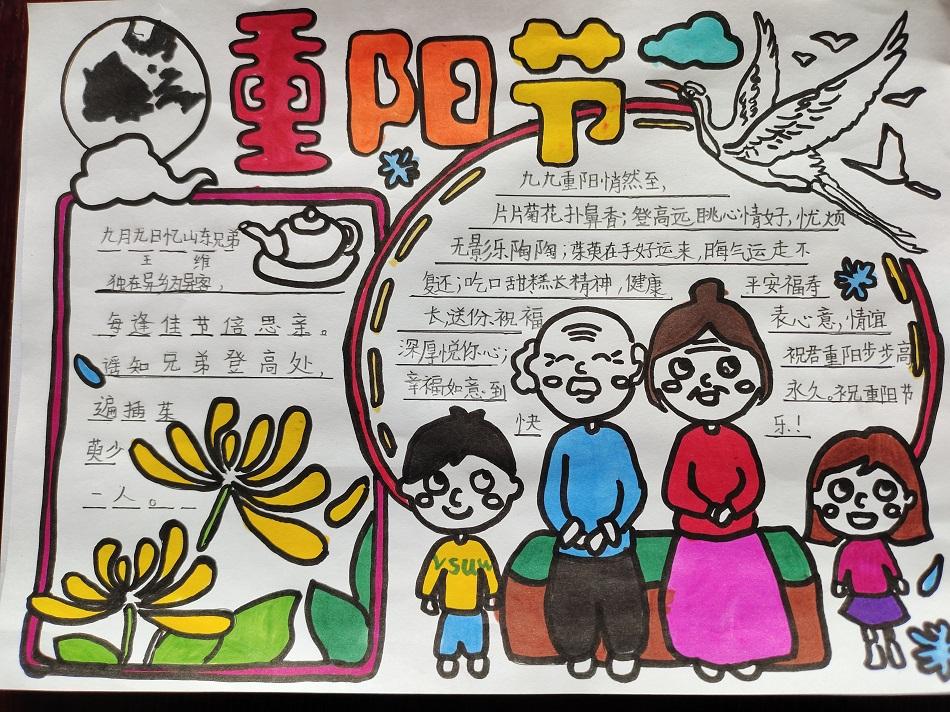 重阳节
九月九日忆山东兄弟
王 维
独在异乡为异客，
每逢佳节倍思亲。
遥知兄弟登高处，
遍插茱
萸少
一人。
九九重阳悄然至，
片片菊花扑鼻香；登高远眺心情好，忧烦
无影乐陶陶；茱萸在手好运来，晦气运走不
复还；吃口甜糕长精神，健康 平安福寿
长，送份祝福 表心意，情谊
深厚悦你心； 祝君重阳步步高
幸福如意到 永久。祝重阳节
快 乐！
VSUW